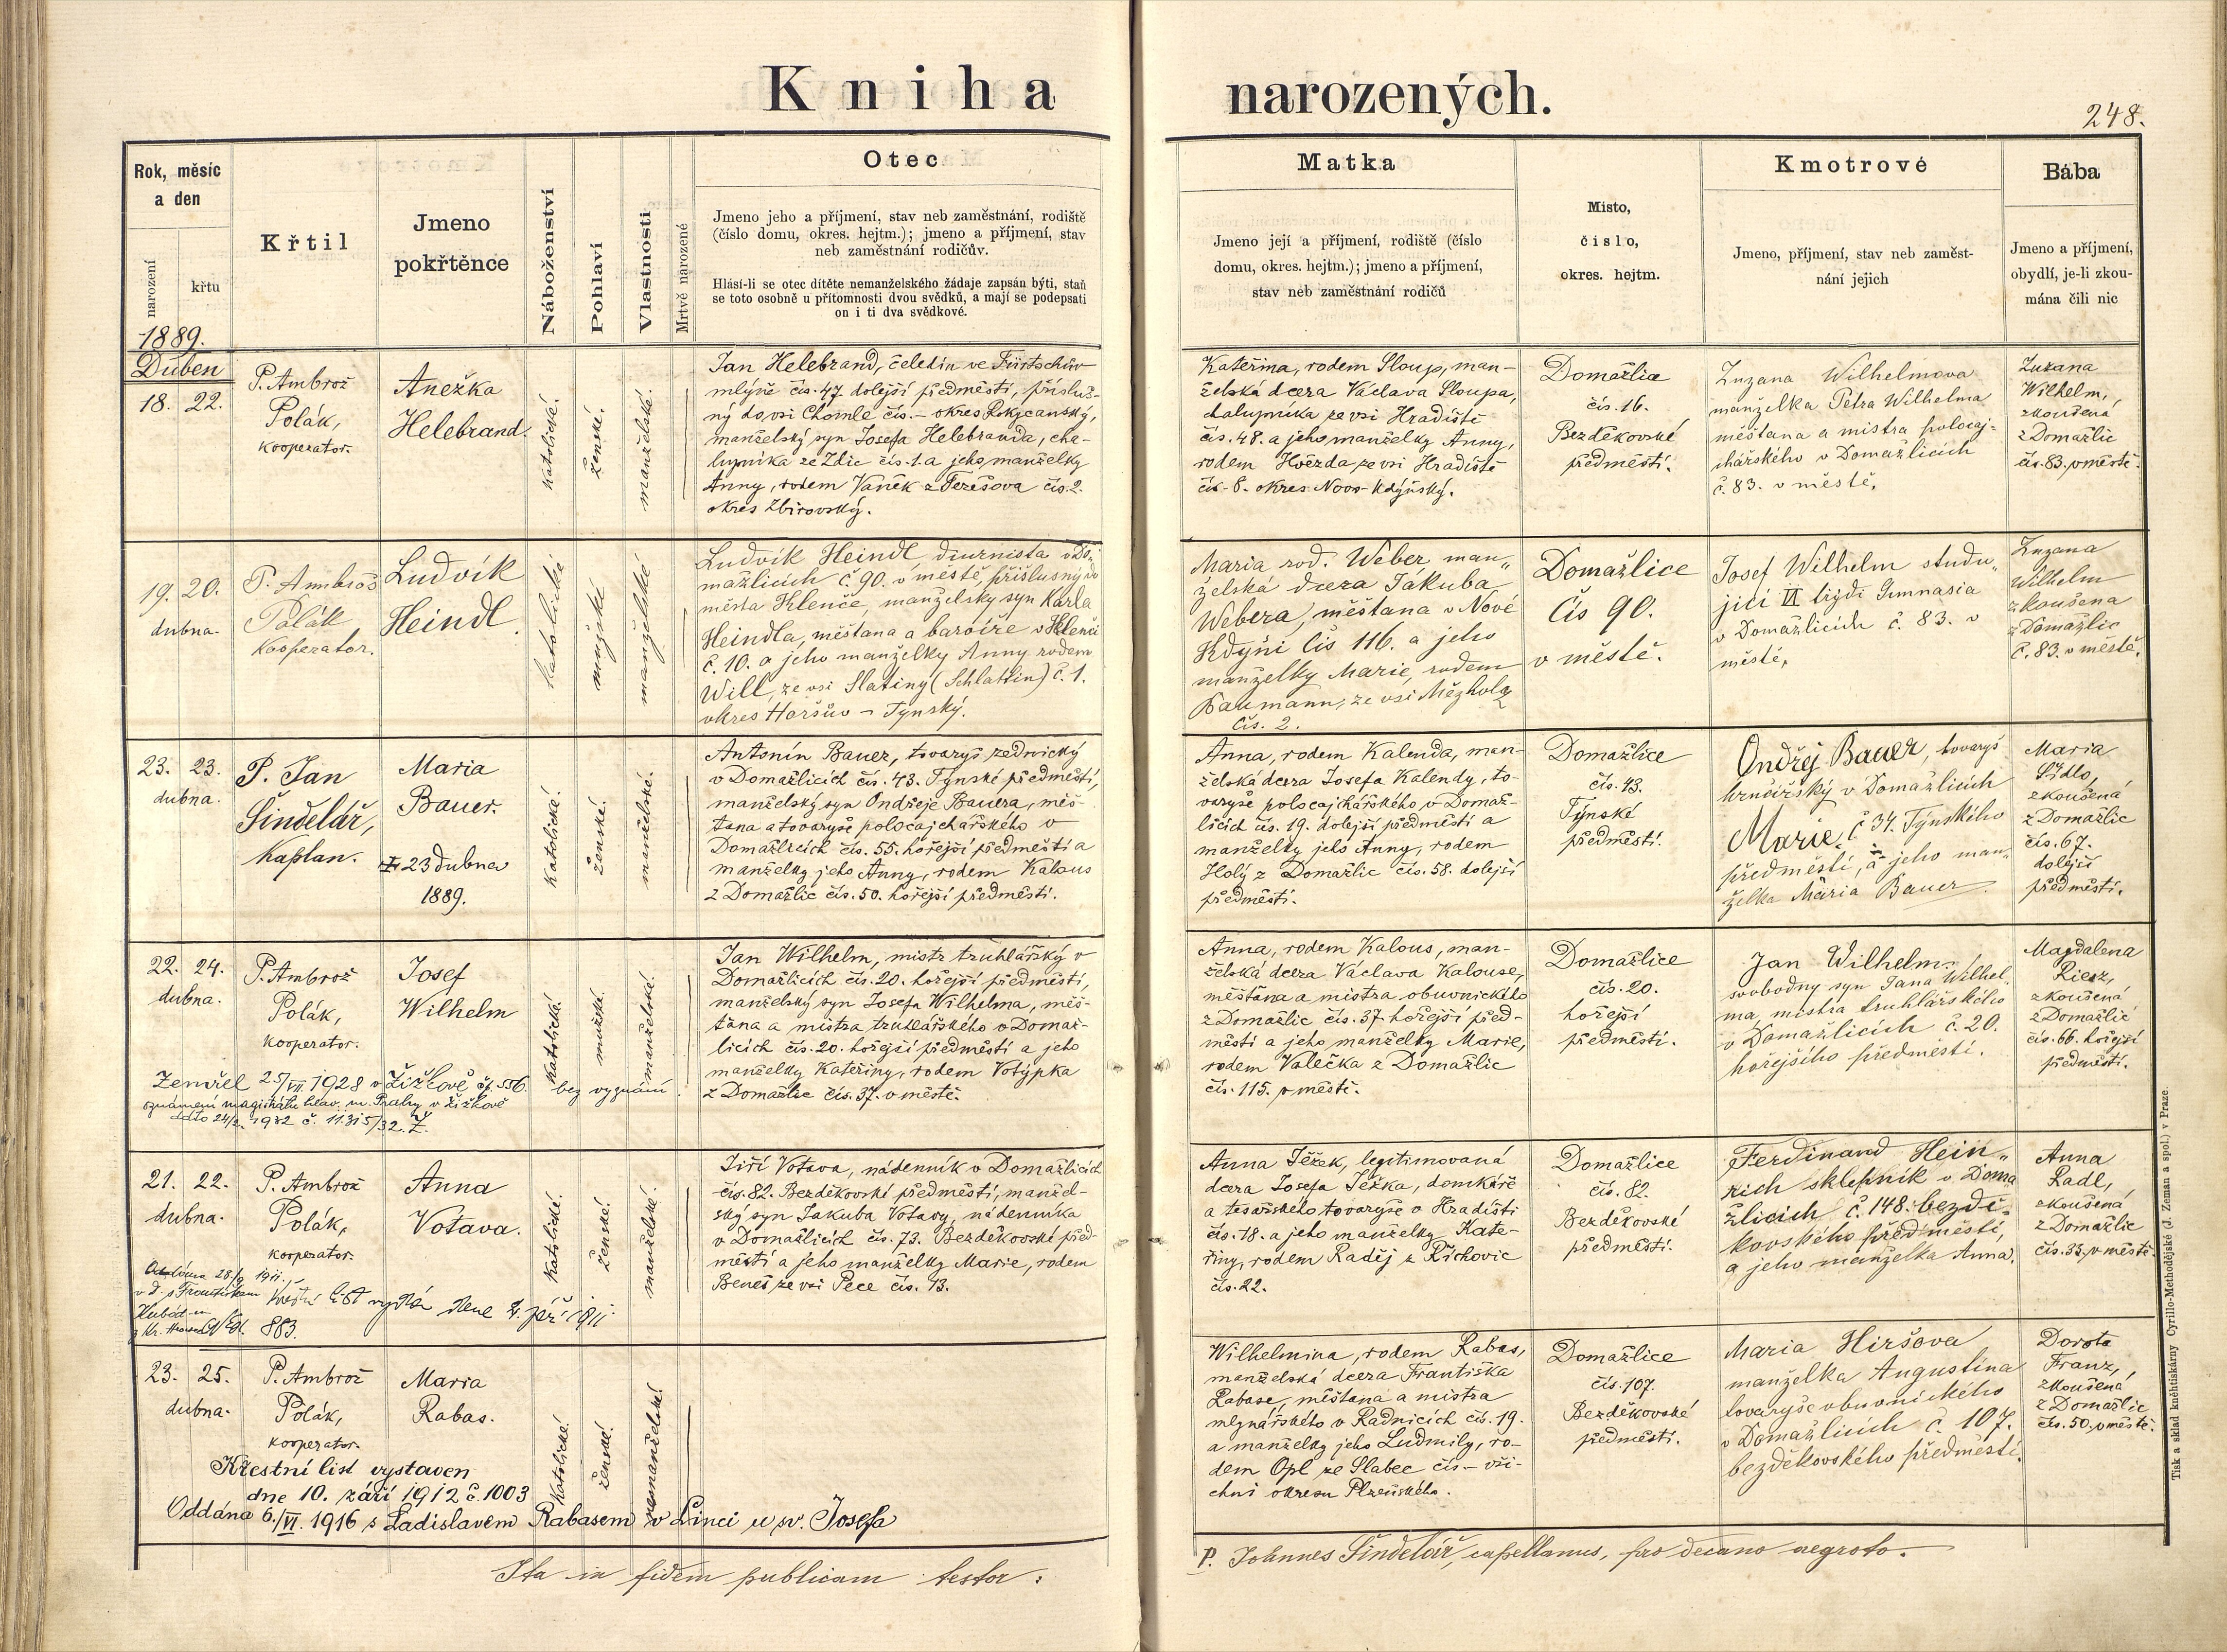 Kniha narozených.
248.
Rok, měsíc
a den
narození
křtu
Křtil
Jmeno
pokřtěnce
Náboženství
Pohlaví
Vlastnosti
Mrtvě narozené
Otec
Jmeno jeho a příjmení, stav neb zaměstnání, rodiště
(číslo domu, okres. hejtm.); jmeno a příjmení, stav
neb zaměstnání rodičův.
Hlásí-li se otec dítěte nemanželského žádaje zapsán býti, staň
se toto osobně u přítomnosti dvou svědků, a mají se podepsati
on i ti dva svědkové.
Matka
Jmeno její a příjmení, rodiště (číslo
domu, okres. hejtm.); jmeno a příjmení,
stav neb zaměstnání rodičů
Místo,
číslo,
okres. hejtm.
Kmotrové
Jmeno, příjmení, stav neb zaměst-
nání jejich
Bába
Jmeno a příjmení,
obydlí, je-li zkou-
mána čili nic
1889.
Duben
18. 22.
P. Ambrož
Polák,
kooperator.
Anežka
Helebrand.
katolické.
ženské.
manželské.
Jan Helebrand, čeledín ve Fürtschův
mlýně čís. 47 dolejší předměstí, přísluš-
ný do vsi Chomle čís. – okres Rokycanský,
manželský syn Josefa Helebranda, cha-
lupníka ze Zdic čís. 1. a jeho manželky
Anny, rodem Vaněk z Terešova čís. 2.
okres Zbirovský.
Kateřina, rodem Sloup, man-
želská dcera Václava Sloupa,
chalupníka ze vsi Hradiště
čís. 48. a jeho manželky Anny,
rodem Hvězda ze vsi Hradiště
čís. 8. okres Novo-Kdýňský.
Domažlice
čís. 16.
Bezděkovské
předměstí.
Zuzana Wilhelmova
manželka Petra Wilhelma
měštana a mistra polocaj-
chářského v Domažlicích
č. 83. v městě.
Zuzana
Wilhelm,
zkoušená
z Domažlic
čís. 83. v městě.
19. 20.
dubna.
P. Ambrož
Polák
Kooperator.
Ludvík
Heindl.
katolické
mužské
manželské
Ludvík Heindl diurnista v Do-
mažlicích č. 90. v městě, příslusný do
města Klenče, manželský syn Karla
Heindla, měštana a barvíře v Klenči
č. 10. a jeho manželky Anny rodem
Will, ze vsi Slatiny (Schlattin) č. 1.
okres Horšův – Týnský.
Maria rod. Weber, man„
želská dcera Jakuba
Webera, měštana v Nové
Kdyni čís 116. a jeho
manželky Marie, rodem
Baumann, ze vsi Mězholz
čís. 2.
Domažlice
čís 90.
v městě.
Josef Wilhelm studu„
jící VI třídi Gimnasia
v Domažlicích č. 83. v
městě,
Zuzana
Wilhelm
zkoušena
z Domažlic
č. 83. v městě.
23. 23.
dubna.
P. Jan
Šindelář,
kaplan.
Maria
Bauer.
23 dubna
1889.
katolické.
ženské.
manželské.
Antonín Bauer, tovaryš zednický
v Domažlicích čís. 43. Týnské předměstí,
manželský syn Ondřeje Bauera, měš-
tana a tovaryše poločajchářského v
Domažlicích čís. 55. hořejší předměstí a
manželky jeho Anny, rodem Kalous
z Domažlic čís. 50. hořejší předměstí.
Anna, rodem Kalenda, man-
želská dcera Josefa Kalendy, to-
varyše polocajchářského v Domaž-
licích čís. 19. dolejší předměstí a
manželky jeho Anny, rodem
Holý z Domažlic čís. 58. dolejší
předměstí.
Domažlice
čís. 43.
Týnské
předměstí.
Ondřej Bauer, tovaryš
hrnčířský v Domažlicích
Marie č 34. Týnského
předměstí, a jeho man„
želka Maria Bauer.
Maria
Šídlo,
zkoušená
z Domažlic
čís. 67.
dolejší
předměstí.
22. 24.
dubna.
P. Ambrož
Polák,
kooperator.
Josef
Wilhelm
katolické.
mužské.
manželské.
Zemřel 25/VII 1928 v Žižkově čp. 556. bez vyznání.
oznámení magistrátu hlav. m. Prahy v Žižkově
Jan Wilhelm, mistr truhlářský v
Domažlicích čís. 20. hořejší předměstí,
manželský syn Josefa Wilhelma, měš-
ťana a mistra truhlářského v Domaž-
licích čís. 20. hořejší předměstí a jeho
manželky Kateřiny, rodem Votýpka
z Domažlic čís. 37. v městě.
Anna, rodem Kalous, man-
želská dcera Václava Kalouse,
měštana a mistra obuvnického
z Domažlic čís. 37. hořejší před-
městí a jeho manželky Marie,
rodem Valečka z Domažlic
čís. 115. v městě.
Domažlice
čís. 20.
hořejší
předměstí.
Jan Wilhelm,
svobodny syn Jana Wilhel
ma, mistra truhlářského
v Domažlicích č. 20.
hořejšího předměstí.
Magdalena
Riesz,
zkoušená
z Domažlic
čís. 66. hořejší
předměstí.
21. 22.
dubna.
P. Ambrož
Polák,
kooperator.
Anna
Votava.
katolické.
ženské.
manželské.
křestní list vydán dne 2. září 1911.
883.
Jiří Votava, nádenník v Domažlicích
čís. 82. Bezděkovské předměstí, manžel-
ský syn Jakuba Votavy, nádenníka
v Domažlicích čís. 73. Bezděkovské před-
městí a jeho manželky Marie, rodem
Beneš ze vsi Pece čís. 13.
Anna Ježek, legitimovaná
dcera Josefa Ježka, domkáře
a tesařského tovaryše v Hradišti
čís. 18. a jeho manželky Kate-
řiny, rodem Raděj z Říchovic
čís. 22.
Domažlice
čís. 82.
Bezděkovské
předměstí.
Ferdinand Hein„
rich sklepník v Doma
žlicích č. 148. bezdě„
kovského předměstí,
a jeho manželka Anna.
Anna
Radl,
zkoušená
z Domažlic
čís. 35. v městě.
23. 25.
dubna.
P. Ambrož
Polák,
kooperator.
Maria
Rabas.
katolické.
ženské.
nemanželské.
Křestní list vystaven
dne 10. září 1912 č. 1003
Oddána 6./VI. 1916 s Ladislavem Rabasem v Linci u sv. Josefa
Wilhelmina, rodem Rabas,
manželská dcera Františka
Rabase, měštana a mistra
mlynářského v Radnicích čís. 19.
a manželky jeho Ludmily, ro-
dem Opl ze Slabec čís – vši-
chni okresu Plzeňského.
Domažlice
čís. 107.
Bezděkovské
předměstí.
Maria Hiršova
manželka Augustina
tovaryše obuvnického
v Domažlicích č. 107.
bezděkovského předměstí.
Dorota
Franz,
zkoušená
z Domažlic
čís. 50. v městě.
Ita in fidem publicam testor:
P. Johnnes Šindelář, capellanus, pro decano aegroto.
Tisk a sklad knihtiskárny Cyrillo-Methodějské (J. Zeman a spol.) v Praze.